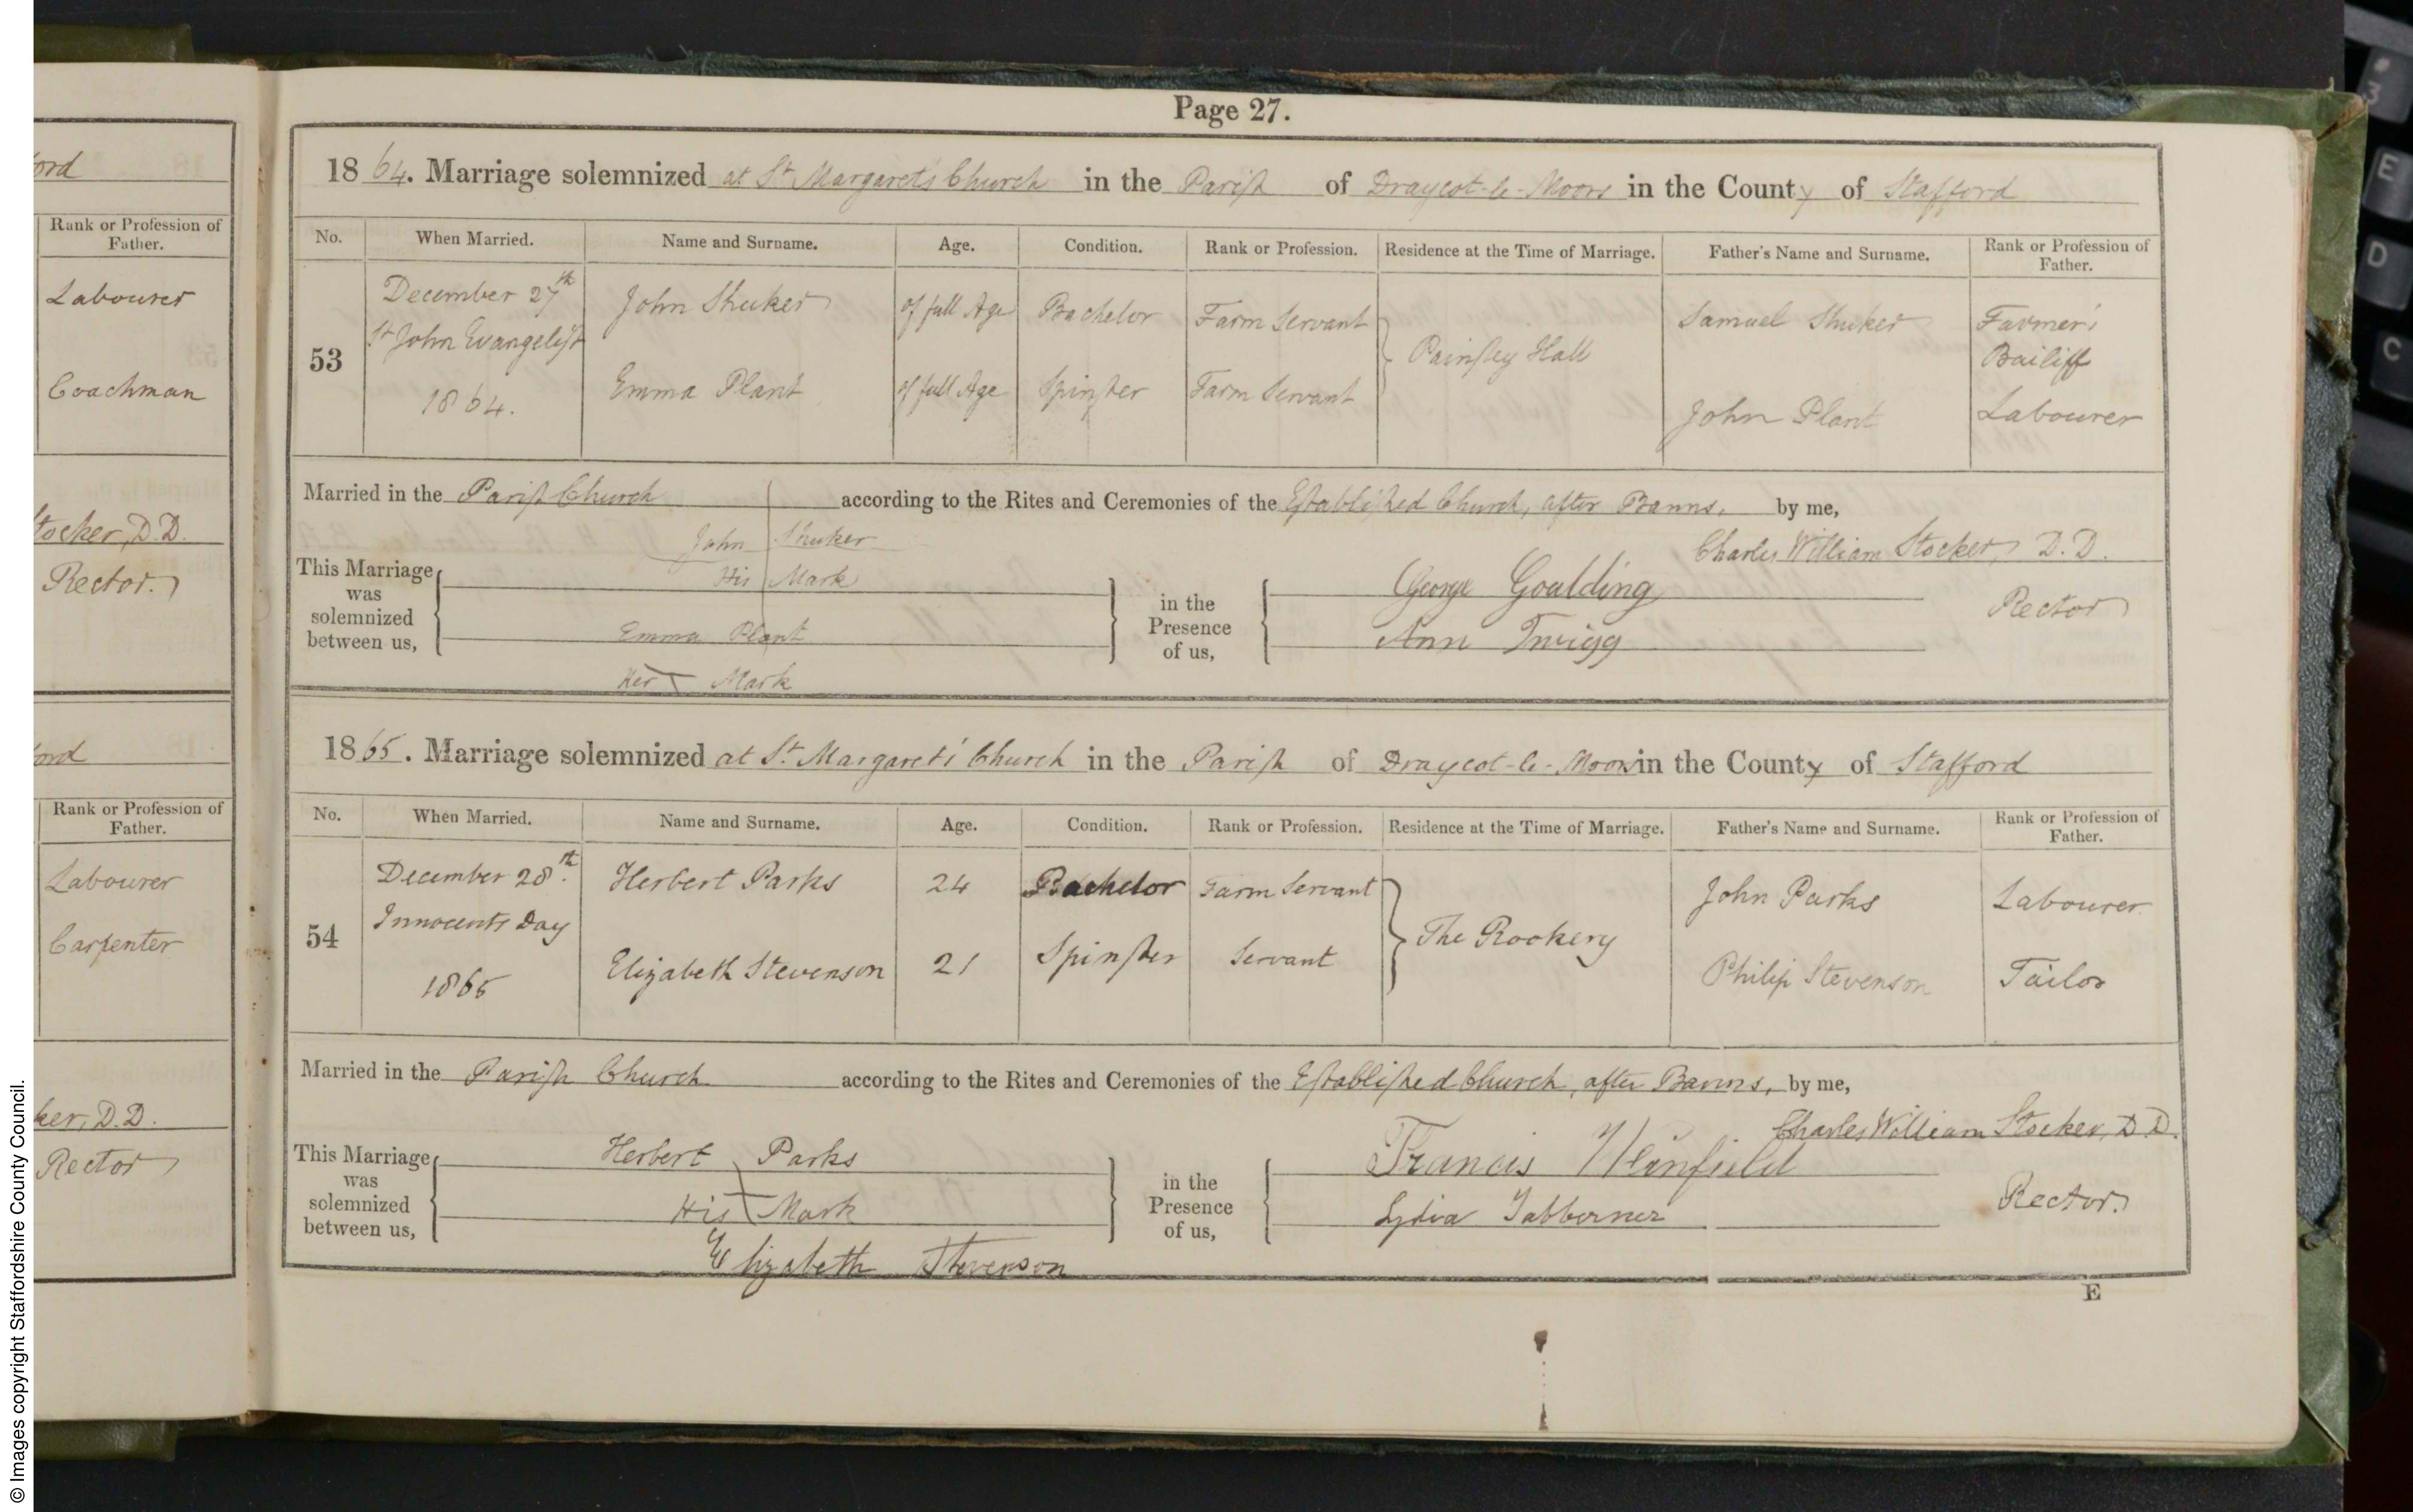 Page 27.
ord
Rank or Profession of Father.
Labourer
Coachman
tocker, D.D.
Rector.
ord
Rank or Profession of Father.
Labourer
Carpenter
ker, D.D.
Rector
1864. Marriage solemnized at St. Margaret's Church in the Parish of Draycot-le-Moors in the County of Stafford
No. When Married. Name and Surname. Age. Condition. Rank or Profession. Residence at the Time of Marriage. Father's Name and Surname. Rank or Profession of Father.
53 December 27th St John Evangelist 1864.
John Shuker of full Age Bachelor Farm Servant Painsley Hall Samuel Shuker Farmer's Bailiff
Emma Plant of full Age Spinster Farm Servant John Plant Labourer
Married in the Parish Church according to the Rites and Ceremonies of the Established Church, after Banns, by me,
Charles William Stocker, D.D.
Rector
This Marriage was solemnized between us,
John Shuker
His Mark
Emma Plant
Her Mark
in the Presence of us,
George Goulding
Ann Twigg
1865. Marriage solemnized at St. Margaret's Church in the Parish of Draycot-le-Moors in the County of Stafford
No. When Married. Name and Surname. Age. Condition. Rank or Profession. Residence at the Time of Marriage. Father's Name and Surname. Rank or Profession of Father.
54 December 28th. Innocents Day 1865
Herbert Parks 24 Bachelor Farm Servant The Rookery John Parks Labourer
Elizabeth Stevenson 21 Spinster Servant Philip Stevenson Tailor
Married in the Parish Church according to the Rites and Ceremonies of the Established Church, after Banns, by me,
Charles William Stocker, D.D.
Rector.
This Marriage was solemnized between us,
Herbert Parks
His Mark
Elizabeth Stevenson
in the Presence of us,
Francis Winfield
Lydia Tabberner
E
© Images copyright Staffordshire County Council.
# 3
E
D
C